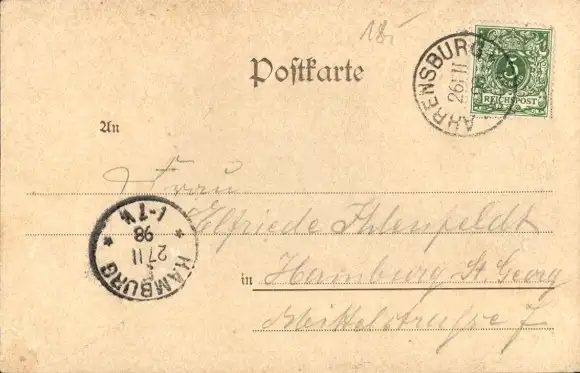 18.-
Postkarte
AHRENSBURG
26/11
5
REICHSPOST
An
Frau
Elfriede Ihlenfeldt
in Hamburg St. Georg
Mittelstrasse 7
HAMBURG
27.11
98
1-7 V